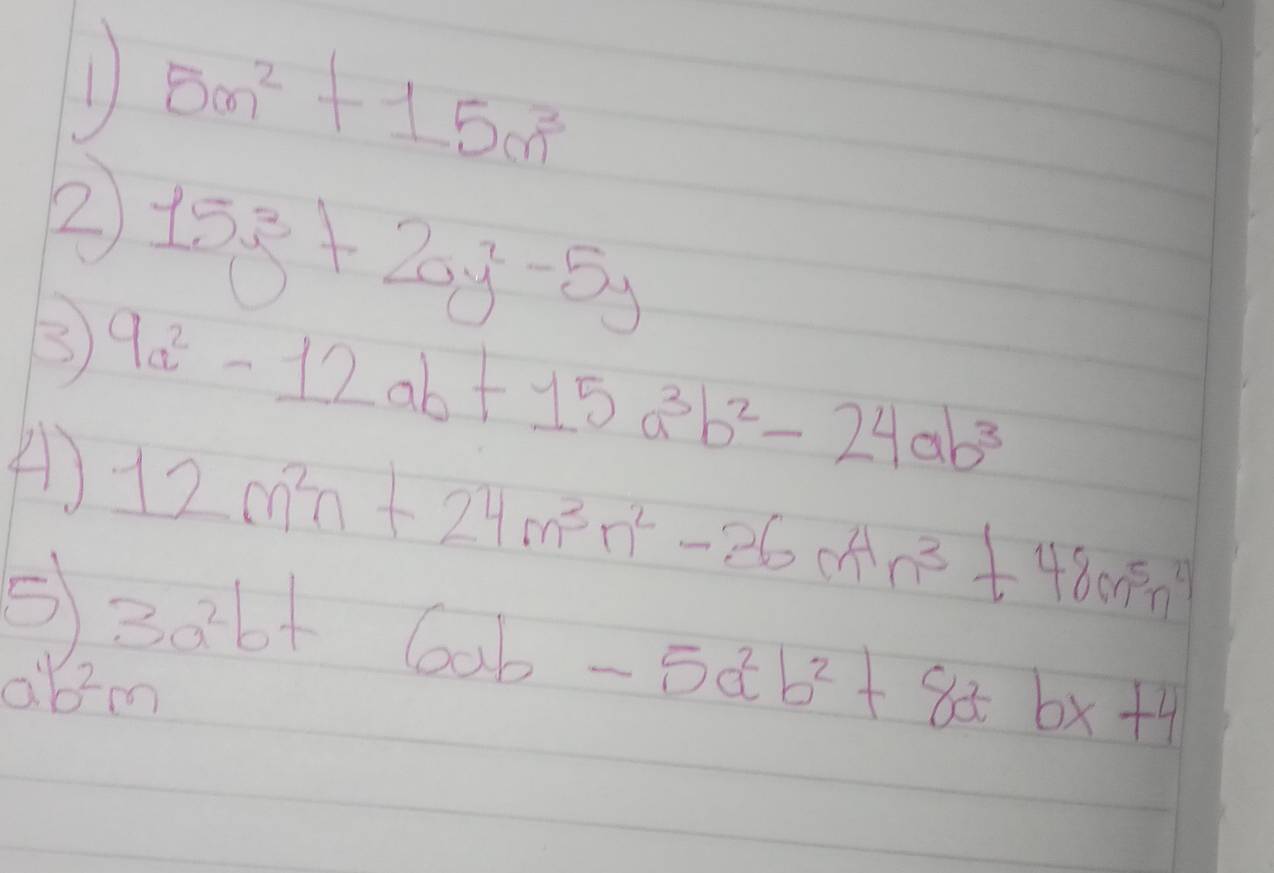 1) 5m² + 15m³
2) 15y³ + 20y² - 5y
3) 9a² - 12ab + 15a³b² - 24ab³
4) 12m²n + 24m³n² - 36m⁴n³ + 48m⁵n⁴
5) 3a²b + 6ab - 5a²b² + 8a² bx + 4
a⁴b²m